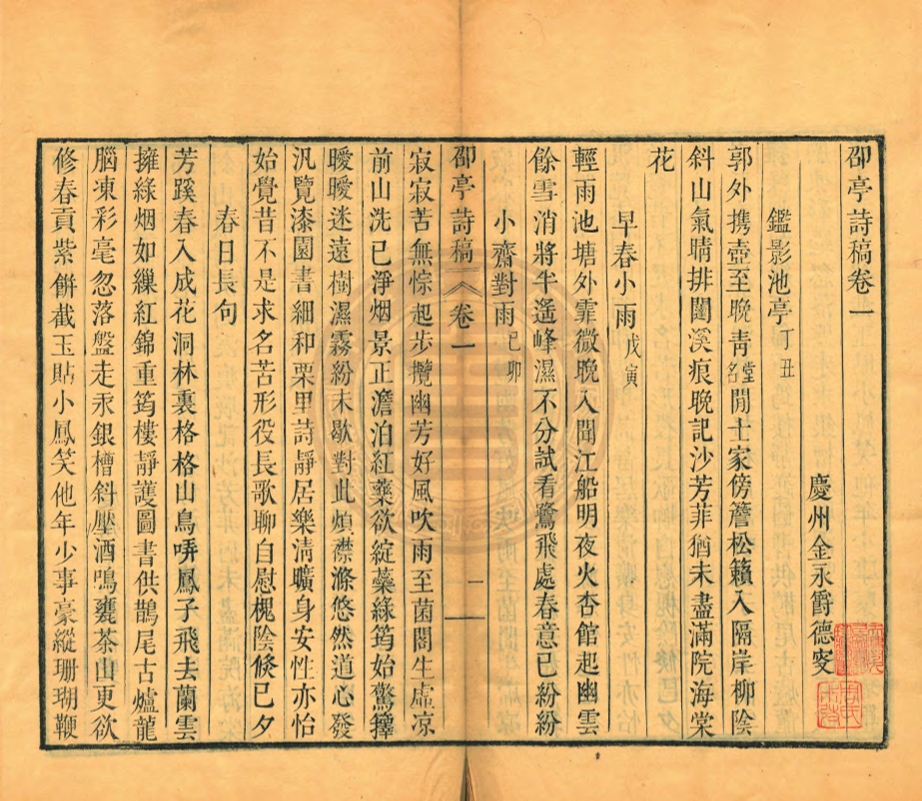 卲亭詩稿卷一
慶州金永爵德叟
鑑影池亭丁丑
郭外携壺至晚青堂名閒士家傍簷松籟入隔岸柳陰
斜山氣晴排闥溪痕晚記沙芳菲猶未盡滿院海棠
花
早春小雨戊寅
輕雨池塘外霏微晚入聞江船明夜火杏館起幽雲
餘雪消將半遙峰濕不分試看鷺飛處春意已紛紛
小齋對雨己卯
卲亭詩稿 卷一 一
寂寂苦無悰起步攬幽芳好風吹雨至菌閣生虛凉
前山洗已淨烟景正澹泊紅藥欲綻蘂綠筠始驚籜
曖曖迷遠樹濕霧紛未歇對此煩襟滌悠然道心發
汎覽漆園書細和栗里詩靜居樂淸曠身安性亦怡
始覺昔不是求名苦形役長歌聊自慰槐陰倐已夕
春日長句
芳蹊春入成花洞林裏格格山鳥哢鳳子飛去蘭雲
擁綠烟如繅紅錦重筠樓靜護圖書供鵲尾古爐龍
腦凍彩毫忽落盤走汞銀槽斜壓酒鳴甕茶山更欲
修春貢紫餅截玉貼小鳳笑他年少事豪縱珊瑚鞭